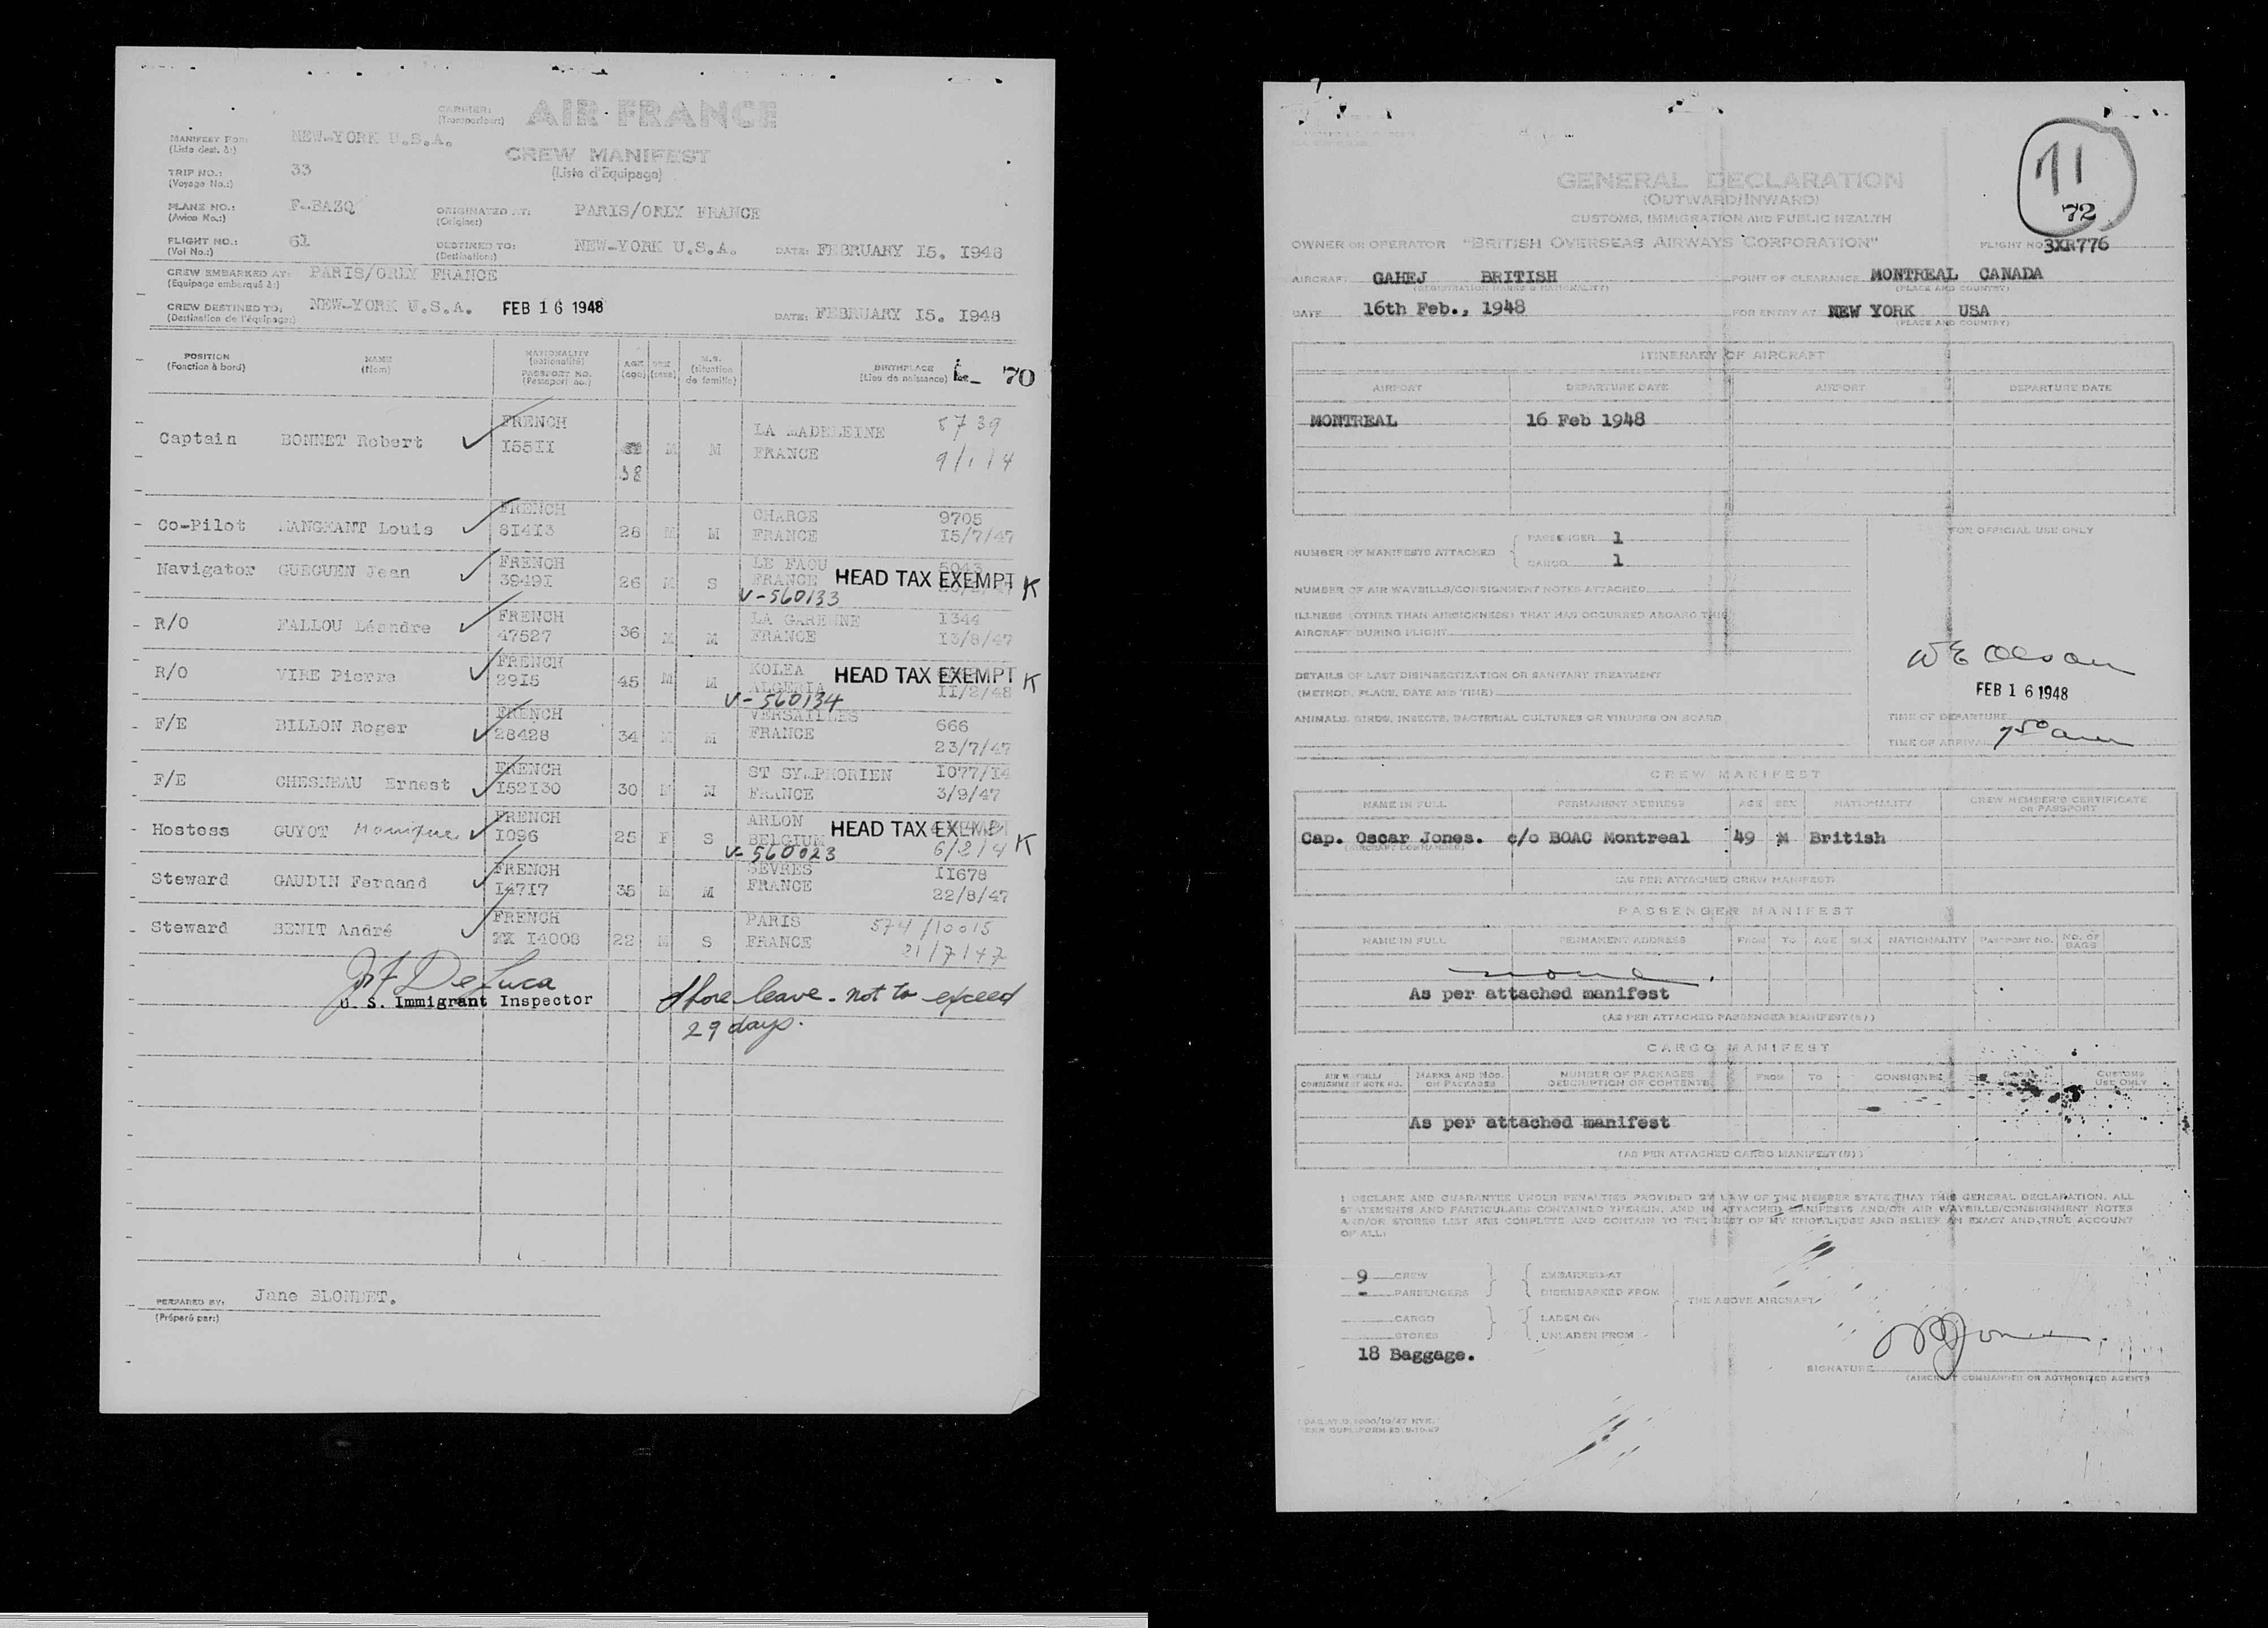 CARRIER: AIR FRANCE
(Transporteur:)
MANIFEST FOR: NEW-YORK U.S.A.
(Liste dest. à:)
CREW MANIFEST
(Liste d'Equipage)
TRIP NO.: 33
(Voyage No.:)
PLANE NO.: F-BAZQ
(Avion No.:)
ORIGINATED AT: PARIS/ORLY FRANCE
(Origine:)
FLIGHT NO.: 61
(Vol No.:)
DESTINED TO: NEW-YORK U.S.A. DATE: FEBRUARY I5. I948
(Destination:)
CREW EMBARKED AT: PARIS/ORLY FRANCE
(Equipage embarqué à:)
CREW DESTINED TO: NEW-YORK U.S.A. FEB 16 1948 DATE: FEBRUARY I5. I948
(Destination de l'équipage:)
POSITION NAME NATIONALITY AGE SEX M.S. BIRTHPLACE 70
(Fonction à bord) (Nom) (nationalité) (age) (sexe) (situation de famille) (Lieu de naissance)
PASSPORT NO.
(Passeport no.)
Captain BONNET Robert FRENCH I55II 38 M M LA MADELEINE FRANCE 8739 9/1/4
Co-Pilot MANGEANT Louis FRENCH 8I4I3 28 M M CHARGE FRANCE 9705 I5/7/47
Navigator GUEGUEN Jean FRENCH 3949I 26 M S LE FAOU FRANCE 5043 HEAD TAX EXEMPT K
V-560133
R/O FALLOU Léandre FRENCH 47527 36 M M LA GARENNE FRANCE I344 I3/8/47
R/O VIRE Pierre FRENCH 29I5 45 M M KOLEA ALGERIA HEAD TAX EXEMPT K II/2/48
V-560134
F/E BILLON Roger FRENCH 28428 34 M M VERSAILLES FRANCE 666 23/7/47
F/E CHESNEAU Ernest FRENCH I52I30 30 M M ST SYMPHORIEN FRANCE I077/I4 3/9/47
Hostess GUYOT Monique FRENCH I096 25 F S ARLON BELGIUM HEAD TAX EXEMPT K 6/2/4
V-560023
Steward GAUDIN Fernand FRENCH I47I7 35 M M SEVRES FRANCE II678 22/8/47
Steward BENIT André FRENCH XX I4008 22 M S PARIS FRANCE 574/10015 21/7/47
De Luca
U. S. Immigrant Inspector
Shore leave - not to exceed
29 days.
PREPARED BY: Jane BLONDET.
(Préparé par:)
71
72
GENERAL DECLARATION
(OUTWARD/INWARD)
CUSTOMS, IMMIGRATION AND PUBLIC HEALTH
OWNER OR OPERATOR "BRITISH OVERSEAS AIRWAYS CORPORATION" FLIGHT NO 3XR776
AIRCRAFT GAHEJ BRITISH POINT OF CLEARANCE MONTREAL CANADA
(REGISTRATION MARKS & NATIONALITY) (PLACE AND COUNTRY)
DATE 16th Feb., 1948 FOR ENTRY AT NEW YORK USA
(PLACE AND COUNTRY)
ITINERARY OF AIRCRAFT
AIRPORT DEPARTURE DATE AIRPORT DEPARTURE DATE
MONTREAL 16 Feb 1948
NUMBER OF MANIFESTS ATTACHED PASSENGER 1
CARGO 1
FOR OFFICIAL USE ONLY
NUMBER OF AIR WAYBILLS/CONSIGNMENT NOTES ATTACHED
ILLNESS (OTHER THAN AIRSICKNESS) THAT HAS OCCURRED ABOARD THIS
AIRCRAFT DURING FLIGHT
W E Olson
DETAILS OF LAST DISINSECTIZATION OR SANITARY TREATMENT
(METHOD, PLACE, DATE AND TIME)
FEB 16 1948
ANIMALS, BIRDS, INSECTS, BACTERIAL CULTURES OR VIRUSES ON BOARD
TIME OF DEPARTURE
TIME OF ARRIVAL 7 50 am
CREW MANIFEST
NAME IN FULL PERMANENT ADDRESS AGE SEX NATIONALITY CREW MEMBER'S CERTIFICATE OR PASSPORT
Cap. Oscar Jones. c/o BOAC Montreal 49 M British
(AIRCRAFT COMMANDER)
(AS PER ATTACHED CREW MANIFEST)
PASSENGER MANIFEST
NAME IN FULL PERMANENT ADDRESS FROM TO AGE SEX NATIONALITY PASSPORT NO. NO. OF BAGS
none
As per attached manifest
(AS PER ATTACHED PASSENGER MANIFEST(S))
CARGO MANIFEST
AIR WAYBILL/CONSIGNMENT NOTE NO. MARKS AND NOS. ON PACKAGES NUMBER OF PACKAGES DESCRIPTION OF CONTENTS FROM TO CONSIGNEE CUSTOMS USE ONLY
As per attached manifest
(AS PER ATTACHED CARGO MANIFEST(S))
I DECLARE AND GUARANTEE UNDER PENALTIES PROVIDED BY LAW OF THE MEMBER STATE THAT THIS GENERAL DECLARATION, ALL
STATEMENTS AND PARTICULARS CONTAINED THEREIN, AND IN ATTACHED MANIFESTS AND/OR AIR WAYBILLS/CONSIGNMENT NOTES
AND/OR STORES LIST ARE COMPLETE AND CONTAIN TO THE BEST OF MY KNOWLEDGE AND BELIEF AN EXACT AND TRUE ACCOUNT
OF ALL:
9 CREW EMBARKED AT
- PASSENGERS DISEMBARKED FROM
THE ABOVE AIRCRAFT
CARGO LADEN ON
STORES UNLADEN FROM
18 Baggage.
Jones
SIGNATURE
(AIRCRAFT COMMANDER OR AUTHORIZED AGENT)